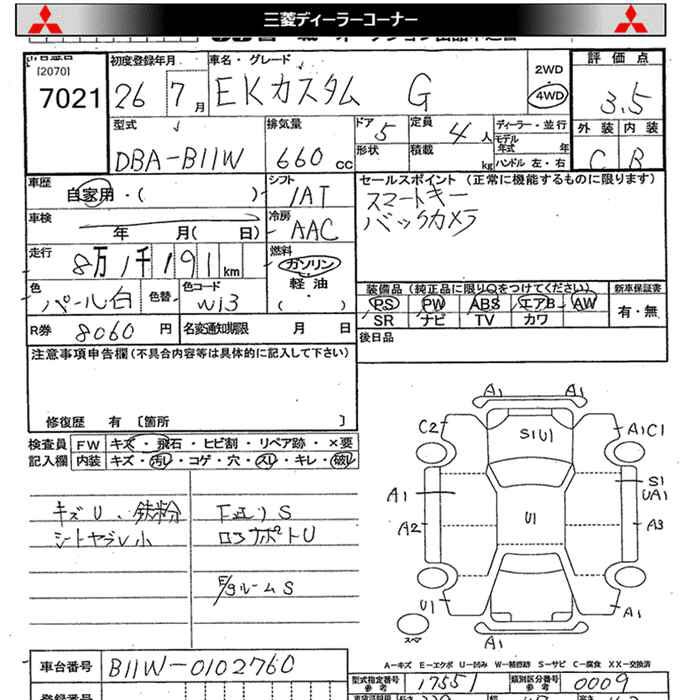 三菱ディーラーコーナー
[2070]
7021
初度登録年月
26 7月
車名・グレード
EKカスタム G
2WD
4WD
評価点
3.5
型式
DBA-B11W
排気量
660 cc
ドア 5
形状
定員 4人
積載 kg
ディーラー・並行
モデル年式 年
ハンドル 左・右
外装 内装
C B
車歴
自家用・( )
シフト
IAT
セールスポイント (正常に機能するものに限ります)
スマートキー
バックカメラ
車検
年 月( 日)
冷房
AAC
走行
8万1千191km
燃料
ガソリン
軽油
( )
色
パール白
色替
色コード
W13
装備品 (純正品に限り○をつけてください)
PS PW ABS エアB AW
SR ナビ TV カワ
新車保証書
有・無
R券 8060円
名変通知期限 月 日
後日品
注意事項申告欄(不具合内容等は具体的に記入して下さい)
修復歴 有 [箇所 ]
検査員記入欄
FW キズ・飛石・ヒビ割・リペア跡・×要
内装 キズ・汚レ・コゲ・穴・スレ・キレ・破レ
キズU、鉄粉
シートヤブレ小
下廻リS
コアサポートU
E/gルームS
A1 A1
C2
S1U1
A1C1
A1
S1
UA1
U1
A2
A3
U1
A1
スペア
A1
A-キズ E-エクボ U-凹み W-補修跡 S-サビ C-腐食 XX-交換済
車台番号 B11W-0102760
型式指定番号 参考 17551
類別区分番号 参考 0009
登録番号